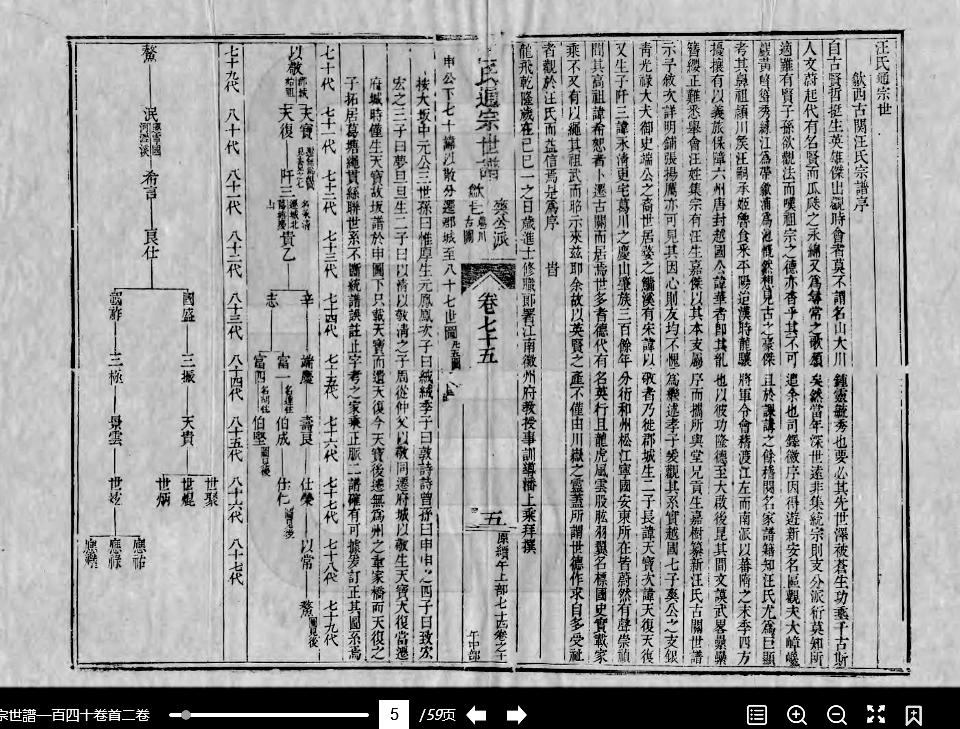 汪氏通宗世
歙西古關汪氏宗譜序
自古賢哲挺生英雄傑出觀時會者莫不謂名山大川鍾靈毓秀也要必其先世深被蒼生功垂千古斯
人文蔚起代有名賢而瓜瓞之永綿又為尋常之歌頌矣然當年深世遠非集統宗則支分派衍莫知所
適雖有賢子孫欲觀法而嘆祖宗之德亦杳乎其不可
考其鼻祖潁川侯汪嗣承姬魯食釆平陽迨漢時龍驤將軍令會稽渡江左而南派以蕃隋之末季四方
擾攘有以義旅保障六州唐封越國公諱華者卽其亂也以彼功隆德至大啟後昆其間文謨武畧纍纍
簪纓正難悉舉會汪姓集宗有汪生嘉傑以其本支屬序而攜所與堂兄貢生嘉樹纂新汪氏古關世譜
示子敘次詳明鋪張揚厲亦可見其因心則友均不愧為繼述孝子爰觀其系實越國七子爽公之支
青光祿大夫御史端公之裔世居婺之鱅溪有宋諱以敬者乃徙郡城生二子長諱天寶次諱天復天復
又生子阡三諱永清更宅葛川之慶山肇族三百餘年分衍和州松江寧國安東所在皆蔚然有聲崇禎
間其高祖諱希恕者卜遷古關而居焉世多耆德代有名英行且龍虎風雲股肱羽翼名標國史實載家
乘不又有以繩其祖武而昭示來茲耶余故以英賢之產不僅由川嶽之靈蓋所謂世德作求自多受祉
者觀於汪氏而益信焉是為序 旹
龍飛乾隆歲在己巳一之日歲進士修職郎署江南徽州府教授事訓導潘上乘拜撰
汪氏通宗世譜
爽公派
卷七十五
五
原續午上部七十四卷之十
午中部
申公下七十諱以敬分遷郡城至八十七世圖
按大坂中元公三世孫曰惟原生元鳳鳳次子曰絨絨季子曰敦詩詩曾孫曰申申之四子曰致宏
宏之三子曰夢旦旦生二子曰以清以敬清之子周從仲父以敬同遷府城以敬生天寶天復當遷
府城時僅生天寶故坂譜於申圖下只載天寶而遺天復今天寶後遷無為州之韋家橋而天復之
子拓居葛塘繩貫絲聯世系不斷統譜誤註止字考之家乘正脈二譜確有可據爰訂正其圖系焉
七十代 七十一代 七十二代 七十三代 七十四代 七十五代 七十六代 七十七代 七十八代 七十九代
以敬 天寶 天復 阡三 貴乙 辛 志
瑞慶 壽良 仕榮 以常 鰲
富一 伯成 仕仁
富四 伯堅
七十九代 八十代 八十一代 八十二代 八十三代 八十四代 八十五代 八十六代 八十七代
鰲 泯 希言 良仕
國盛 三振 天貴 世聚 世焜 世炳
國祚 三極 景雲 世
應祐
應祿
宗世譜一百四十卷首二卷
5 /59页